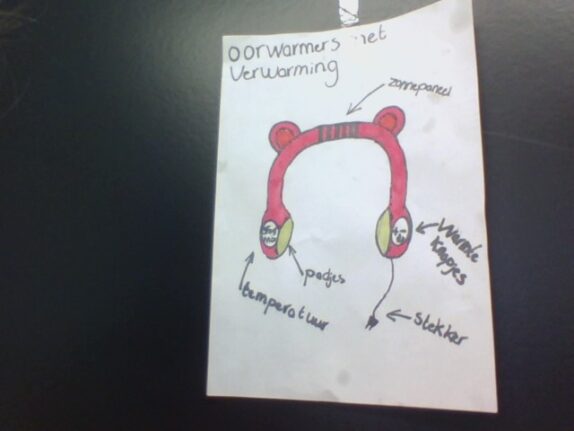 oorwarmers met
verwarming
zonnepaneel
warmte
knopjes
padjes
temperatuur
stekker